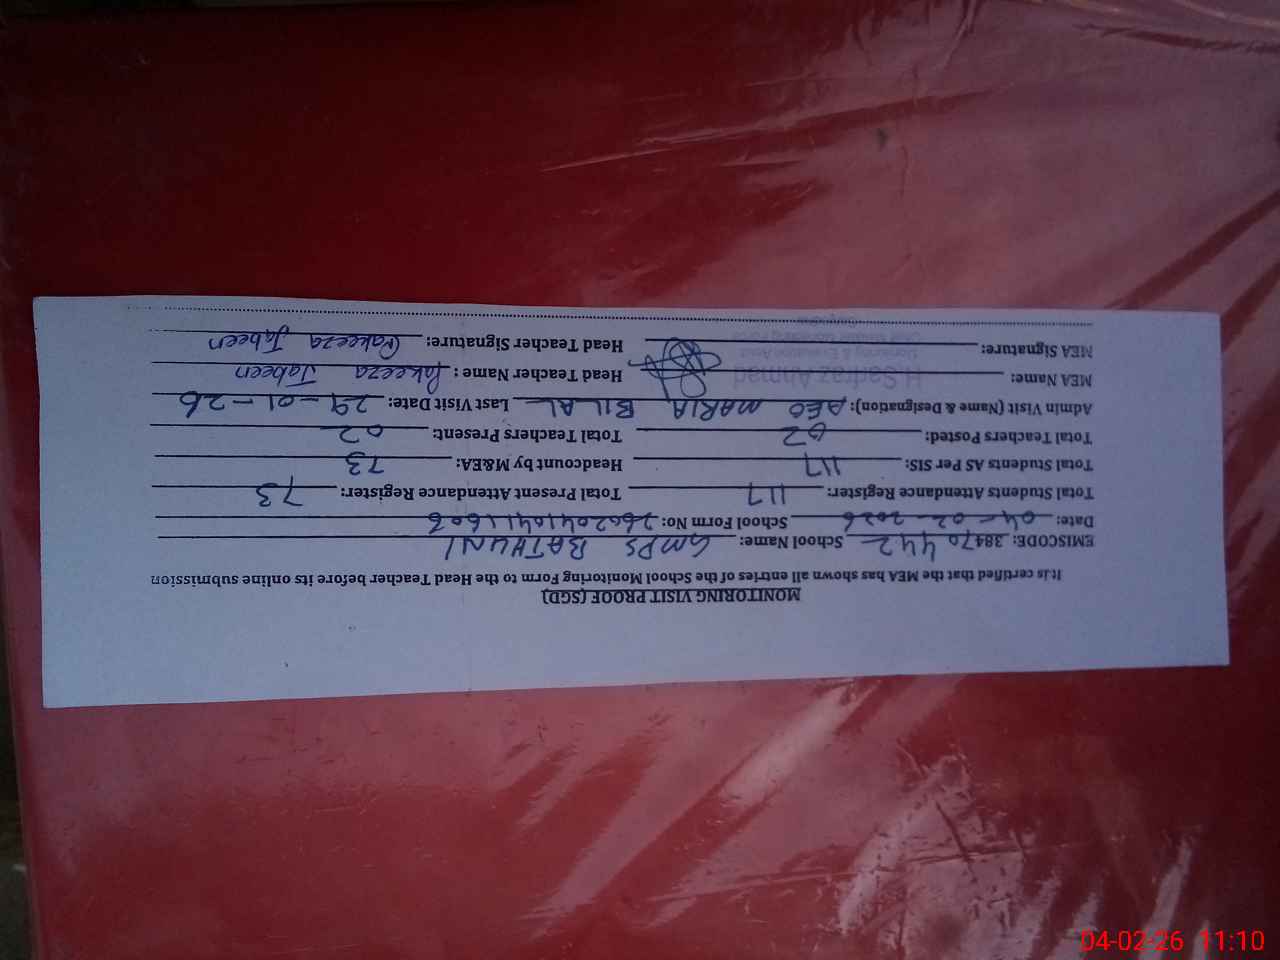 MONITORING VISIT PROOF (SGD)
It is certified that the MEA has shown all entries of the School Monitoring Form to the Head Teacher before its online submission
EMISCODE: 38470442 School Name: GMPS BATHUNI
Date: 04-02-2026 School Form No:
Total Students Attendance Register: 117 Total Present Attendance Register: 73
Total Students AS Per SIS: 117 Headcount by M&EA: 73
Total Teachers Posted: 02 Total Teachers Present: 02
Admin Visit (Name & Designation): AEO MARIA BILAL Last Visit Date: 29-01-26
MEA Name: H.Sadraz Ahmad Head Teacher Name: Pakeeza Jabeen
Monitoring & Evaluation
MEA Signature: Head Teacher Signature: Pakeeza Jabeen
04-02-26 11:10